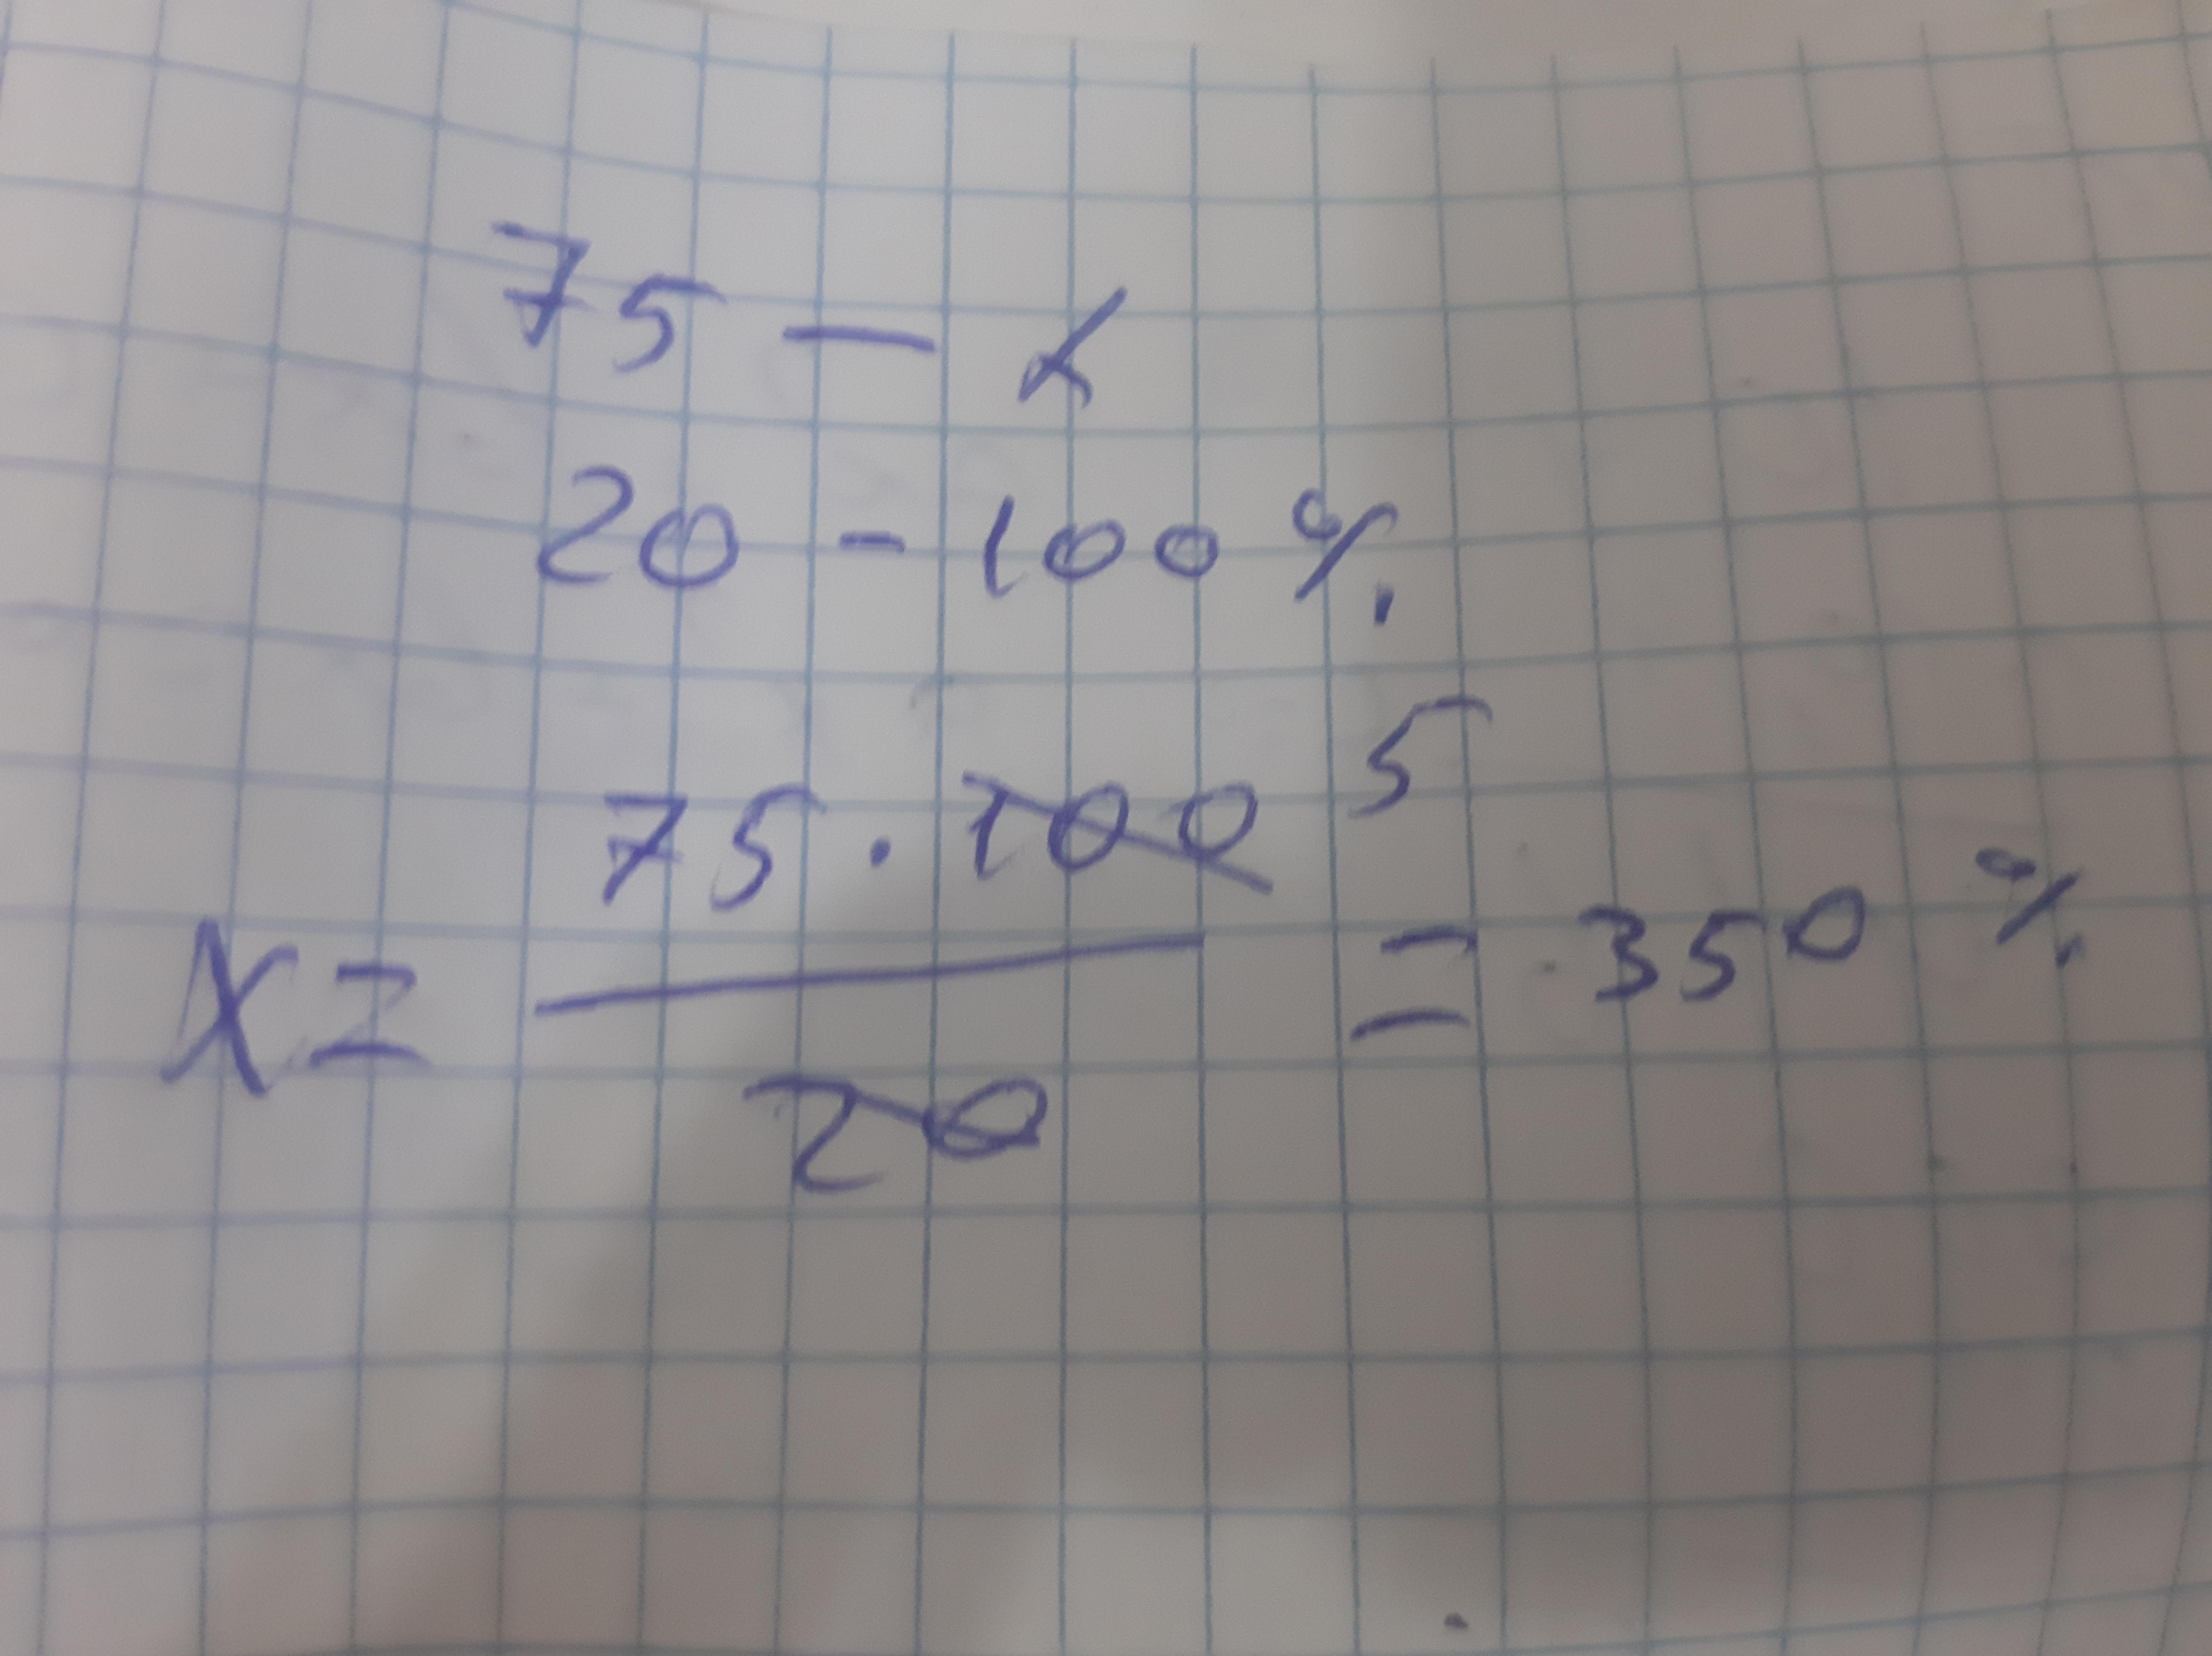 75 — x
20 - 100%
x = 75 · 100 5 / 20 = 350%